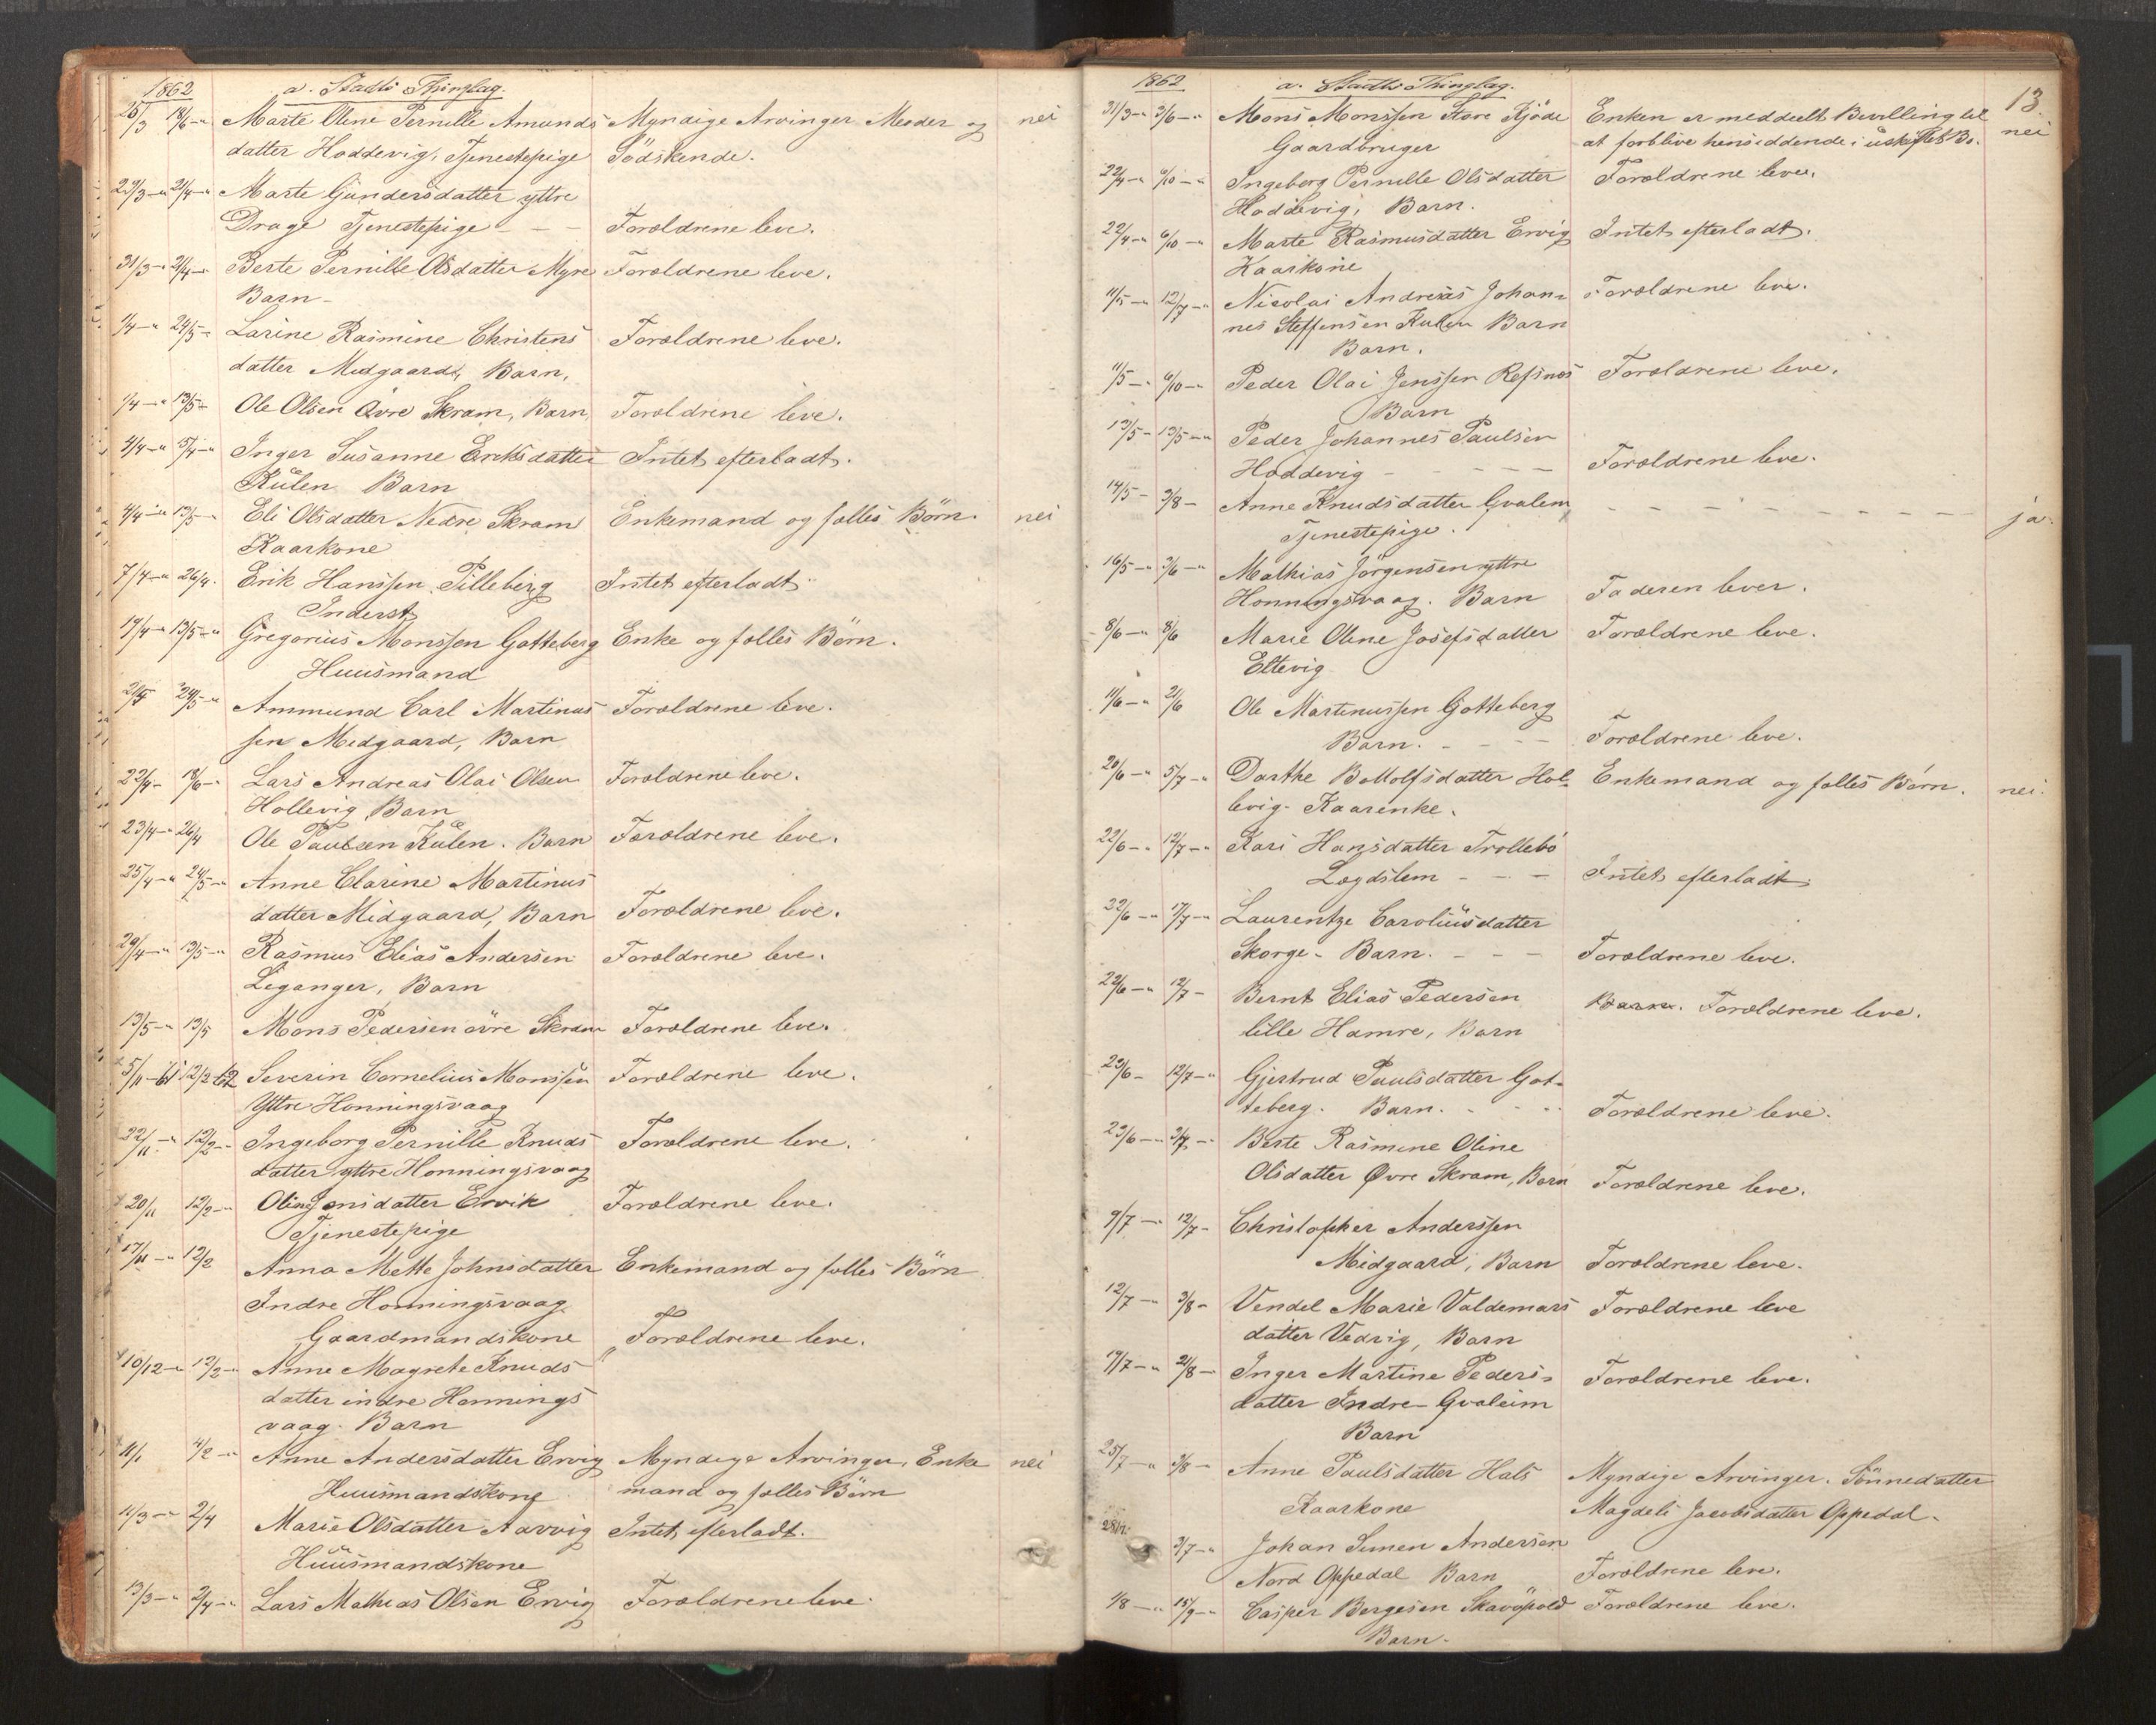 1862 a. Stadts Thinglag.
25/3 18/6 -" Marte Oline Pernille Amunds Myndige Arvinger Moder og nei
datter Hoddevig, Tjenestepige Södskende.
29/3 -" 21/4 -" Marte Gundersdatter yttre
Drage Tjenestepige - - - Forældrene leve.
31/3 -" 21/4 -" Berte Pernille Olsdatter Myre Forældrene leve.
Barn -
1/4 -" 24/5 -" Larine Rasmine Christens Forældrene leve.
datter Midgaard, Barn,
1/4 -" 13/5 - Ole Olsen Övre Skram, Barn Forældrene leve.
4/4 -" 5/4 -" Inger Susanne Eriksdatter Intet efterladt.
Külen Barn
4/4 -" 13/5 -" Eli Olsdatter Nedre Skram Enkemand og fælles Börn. nei
Kaarkone
7/4 -" 26/4. Erik Hanssen Pilleberg Intet efterladt
Inderst
19/4 -" 13/5 -" Gregorius Monssen Gotteberg Enke og fælles Börn.
Huusmand
24/5 -" Ammund Carl Martinus Forældrene leve.
sen Midgaard, Barn
22/4 - 18/6 -" Lars Andreas Olai Olsen Forældrene leve.
Hollevig Barn
23/4 -" 26/4 Ole Paulsen Külen. Barn Forældrene leve.
25/4 -" 24/5 -" Anne Clarine Martinus
datter Midgaard, Barn Forældrene leve.
29/4 -" 13/5 -" Rasmus Elias Andersen Forældrene leve.
Leganger, Barn
13/5 -" 13/5 Mons Pedersen övre Skram Forældrene leve.
5/11 - 61 12/2 - 62 Severin Cornelius Monssen Forældrene leve.
Yttre Honningsvaag
22/11 -" 12/2 -" Ingeborg Pernille Knuds Forældrene leve.
datter yttre Honningsvaag
20/11 12/2 -" Oline Jonsdatter Ervik Forældrene leve.
Tjenestepige
17/11 -" 12/2 Anna Mette Johnsdatter Enkemand og fælles Börn
Indre Honningsvaag
Gaardmandskone Forældrene leve.
10/12 -" 12/2 -" Anne Magrete Knuds "
datter indre Honnings
vaag. Barn
11/1 4/2 -" Anne Andersdatter Ervig Myndige Arvinger, Enke nei
Huusmandskone mand og fælles Börn
11/3 -" 2/4 Marie Olsdatter Aarvig Intet efterladt.
Huusmandskone
13/3 -" 2/4 -" Lars Mathias Olsen Ervig Forældrene leve.
1862 a. Stadts Thinglag. 13.
21/3 -" 3/6 -" Mons Monssen Store Fjöde Enken er meddeelt Bevilling til
Gaardbruger at forblive hensiddende i uskiftet Bo. nei
22/4 -" 6/10 -" Ingeborg Pernille Olsdatter Forældrene leve.
Hoddevig, Barn.
22/4 -" 6/10 -" Marte Rasmusdatter Ervig Intet efterladt.
Kaarkone
11/5 -" 12/7 -" Nicolai Andreas Johan- Forældrene leve.
nes Steffensen Kulen Barn
Barn.
11/5 -" 6/10 -" Peder Olai Jenssen Refsnes Forældrene leve.
Barn
13/5 - 13/5 -" Peder Johannes Paulsen
Hoddevig - - - - - Forældrene leve.
14/5 - 3/8 - Anne Knudsdatter Gvalem - - - - - - - - - ja.
Tjenestepige.
16/5 -" 3/6 -" Mathias Jörgensen yttre
Honningsvaag. Barn Faderen lever.
8/6 -" 8/6 Marie Oline Josefsdatter Forældrene leve.
Eltevig
11/6 -" 21/6 Ole Martinussen Gotteberg
Barn. - - - Forældrene leve.
20/6 -" 5/7 -" Dorthe Bottolfsdatter Hol- Enkemand og fælles Börn. nei.
levig. Kaarenke.
22/6 -" 12/7 -" Kari Hansdatter Trollebö
Lægdslem - - - Intet efterladt
22/6 -" 17/7 -" Laurentze Caroliusdatter
Skorge. Barn. - - - Forældrene leve.
22/6 -" 12/7 - Bernt Elias Pedersen Barn. Forældrene leve.
lille Hamre, Barn
23/6 - 12/7 -" Gjertrud Paulsdatter Got-
teberg. Barn. - - - Forældrene leve.
23/6 -" 3/7 -" Berte Rasmine Oline
Olsdatter Øvre Skram, Barn Forældrene leve.
9/7 -" 12/7 - Christopher Anderssen
Midgaard, Barn Forældrene leve.
12/7 -" 3/8 - Vendel Marie Valdemars Forældrene leve
datter Vedvig, Barn
19/7 -" 21/8 - Inger Martine Peders- Forældrene leve.
datter Indre Gvaleim
Barn
25/7 -" 3/8 - Anne Paulsdatter Hals Myndige Arvinger. Sönnedatter
Kaarkone Magdeli Jacobsdatter Oppedal.
3/7 -" Johan Simen Andersen
Nord Oppedal Barn Forældrene leve.
1/8 -" 15/9 -" Casper Børgesen Skavöpold Forældrene leve.
Barn.